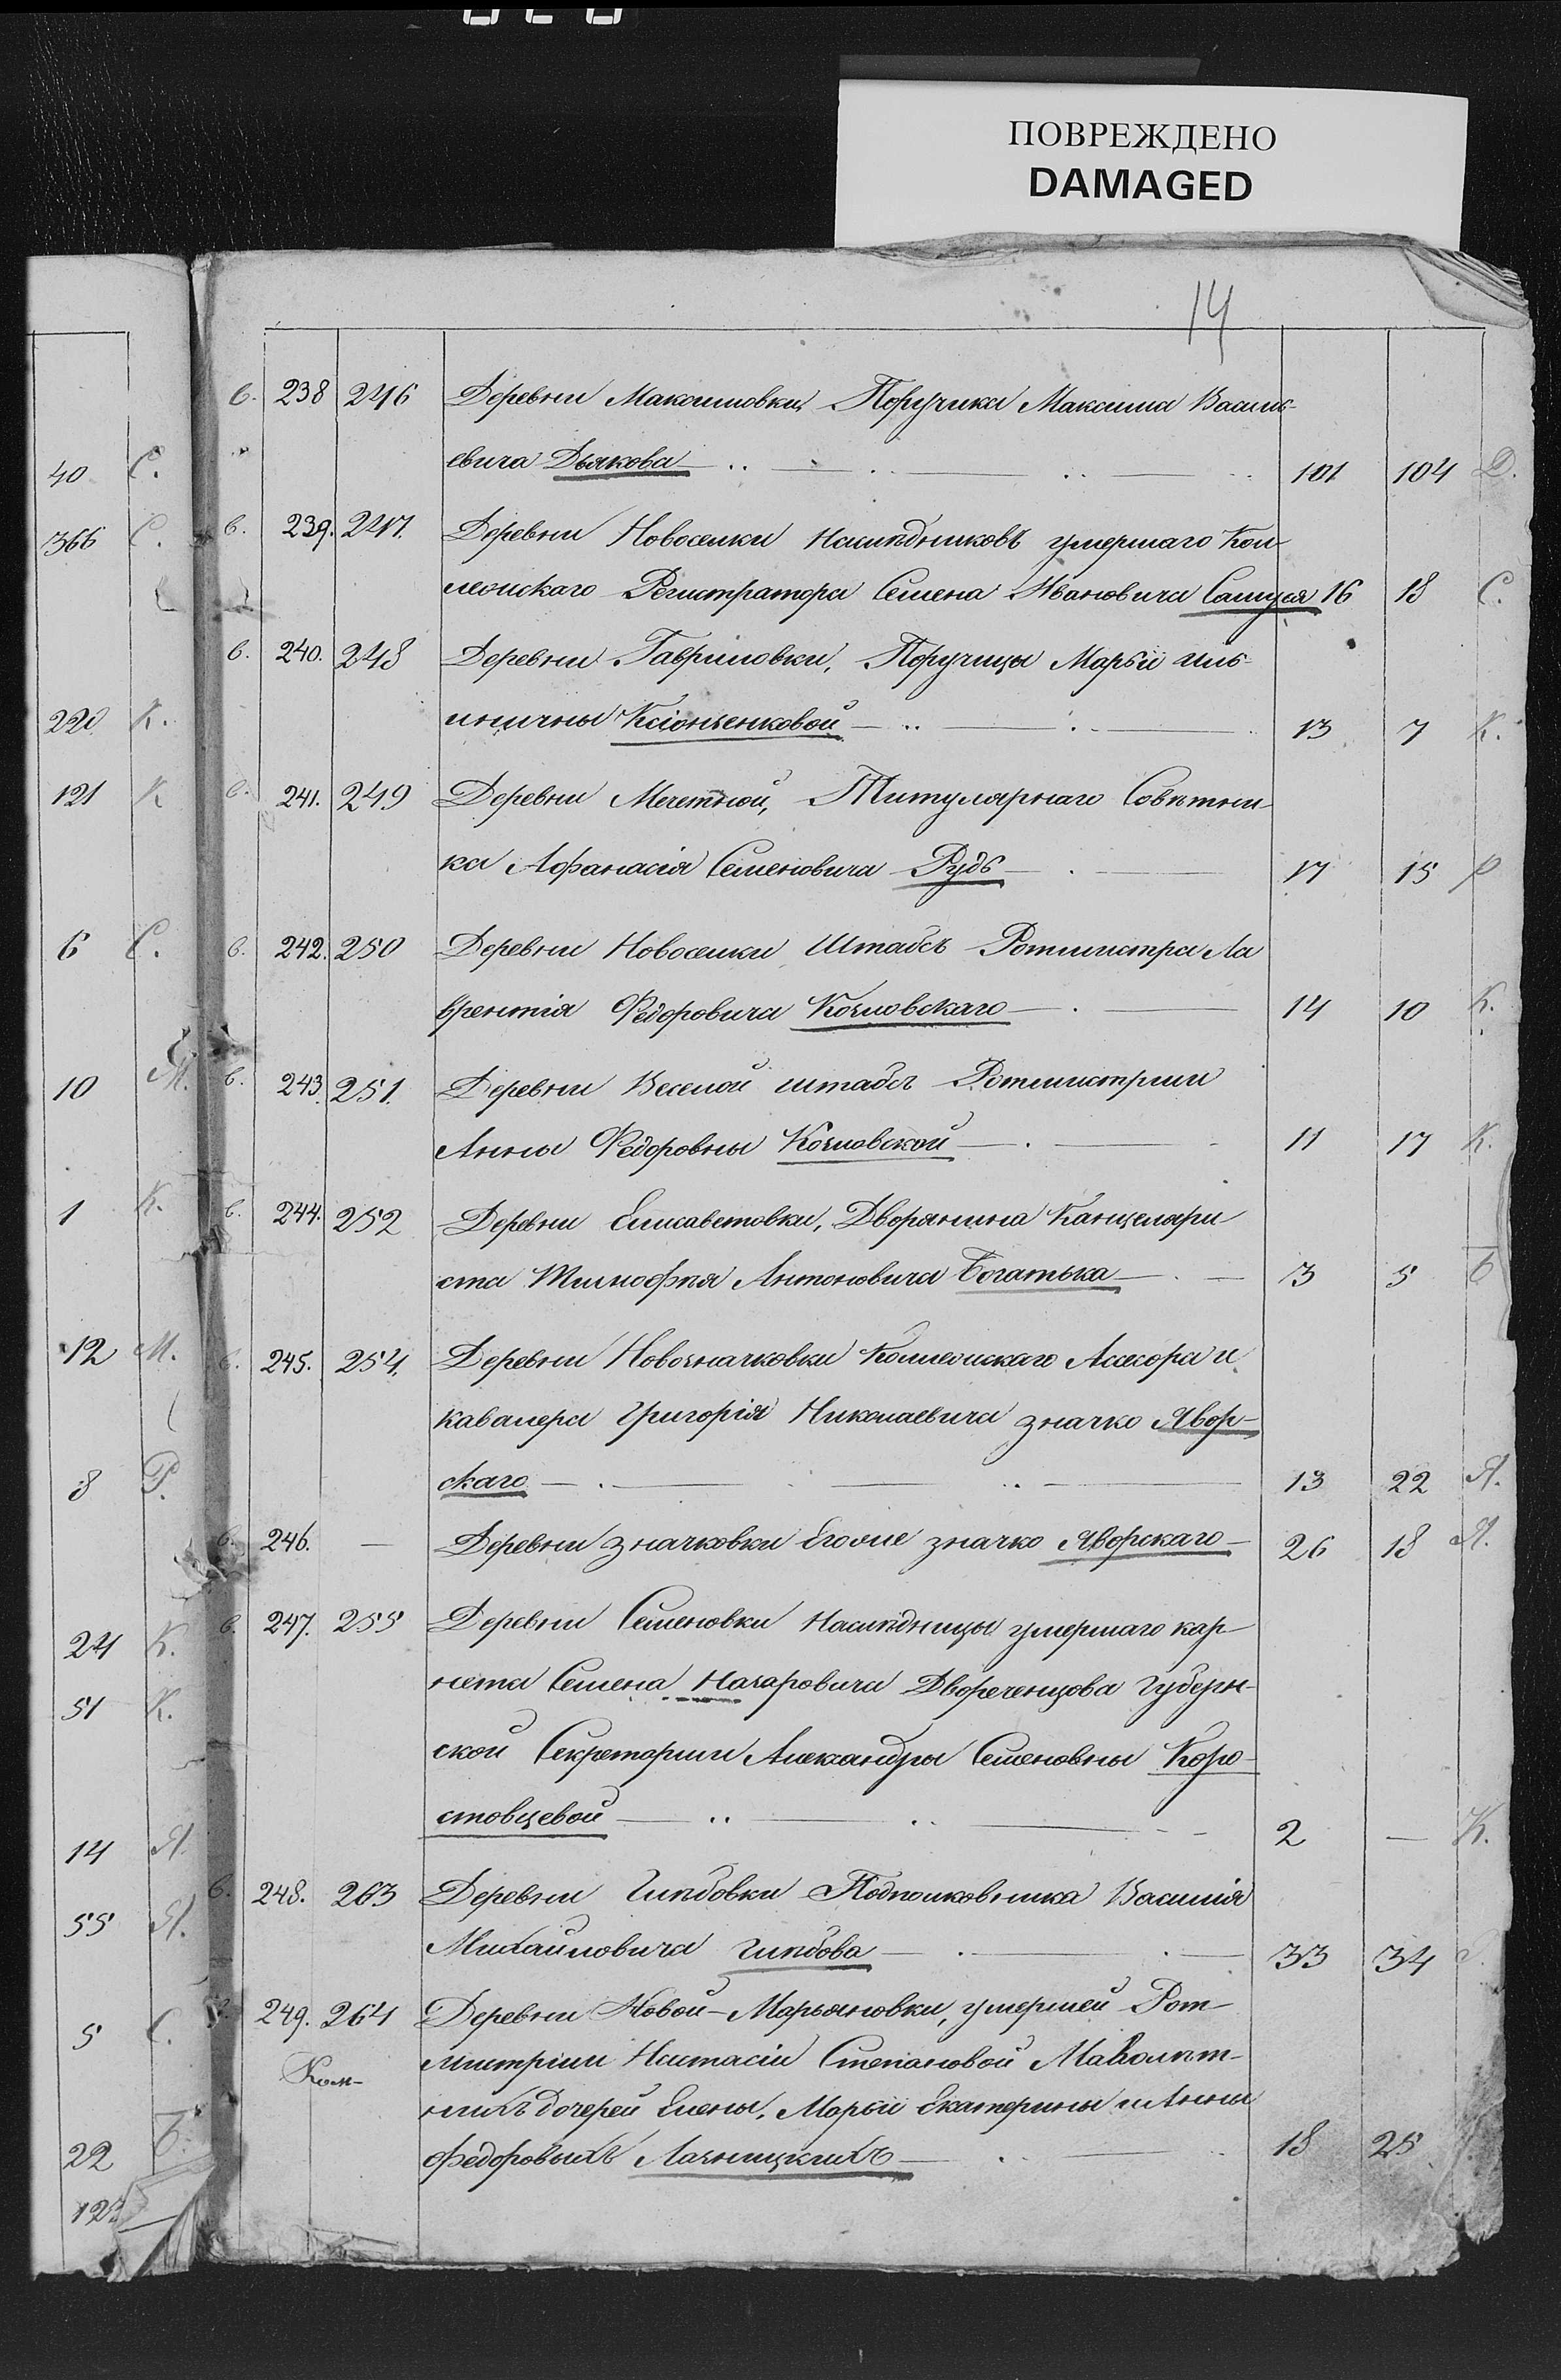 ПОВРЕЖДЕНО
DAMAGED
14
в. 238 246 Деревни Максимовки, Поручика Максима Василь-
евича Дьякова 101 104 Д.
в. 239. 247. Деревни Новоселки Наслѣдниковъ умершаго Кол-
лежскаго Регистратора Семена Ивановича 16 18 С.
в. 240. 248 Деревни Гавриловки, Поручицы Марьи Иль-
иничны Ксіонженковой 13 7 К.
в. 241. 249 Деревни Мечетной, Титулярнаго Совѣтни-
ка Афанасія Семеновича Рудь 17 15 Р
в. 242. 250 Деревни Новоселки Штабсъ Ротмистра Ла
врентія Федоровича Козловскаго 14 10 К.
в. 243. 251. Деревни Веселой штабсъ Ротмистрши
Анны Федоровны Козловской 11 17 К.
в. 244. 252 Деревни Елисаветовки, Дворянина Канцеляри
ста Тимофѣя Антоновича Богатька 3 5 Б
в. 245. 254. Деревни Новозначковки Коллежскаго Ассесора и
кавалера Григорія Николаевича значко Явор-
скаго 13 22 Я.
в. 246. — Деревни значковки Егоже значко Яворскаго 26 18 Я.
в. 247. 255 Деревни Семеновки Наслѣдницы умершаго кор-
нета Семена Назаровича Двореченцова Губерн-
ской Секретарши Александры Семеновны Коро-
стовцевой 2 — К.
в. 248. 263 Деревни Глѣбовки Подполковника Василія
Михайловича Глѣбова 33 34
249. 264 Деревни Новой-Марьяновки, умершей Рот-
мистрши Настасіи Степановой Малолѣт-
Ком-
нихъ дочерей Елены, Марьи Екатерины и Анны
Федоровыхъ Лазницкихъ 18 25
40 С.
366 С.
220 К.
121 К
6 С.
10 М.
1 К.
12 М.
8 Р.
24 К.
51 К.
14 Я
55 Я.
5 С.
22 Б.